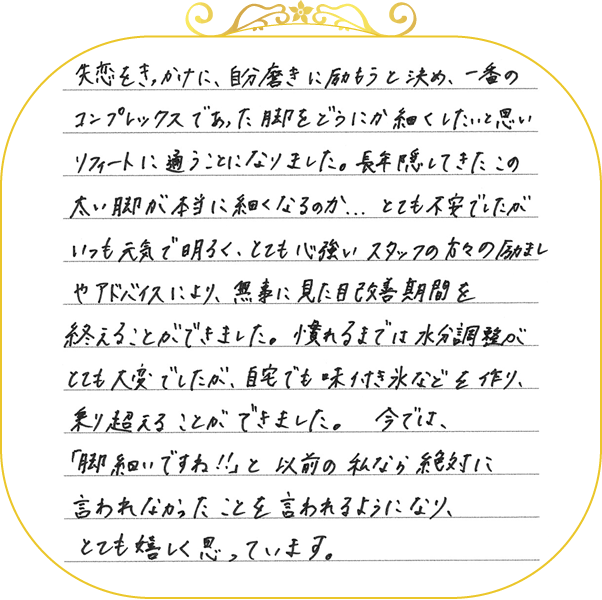 失恋をきっかけに、自分磨きに励もうと決め、一番の
コンプレックスであった脚をどうにか細くしたいと思い
リフィートに通うことになりました。長年隠してきたこの
太い脚が本当に細くなるのか... とても不安でしたが
いつも元気で明るく、とても心強いスタッフの方々の励まし
やアドバイスにより、無事に見た目改善期間を
終えることができました。慣れるまでは水分調整が
とても大変でしたが、自宅でも味付き氷などを作り、
乗り超えることができました。 今では、
「脚細いですね!!」と以前の私なら絶対に
言われなかったことを言われるようになり、
とても嬉しく思っています。